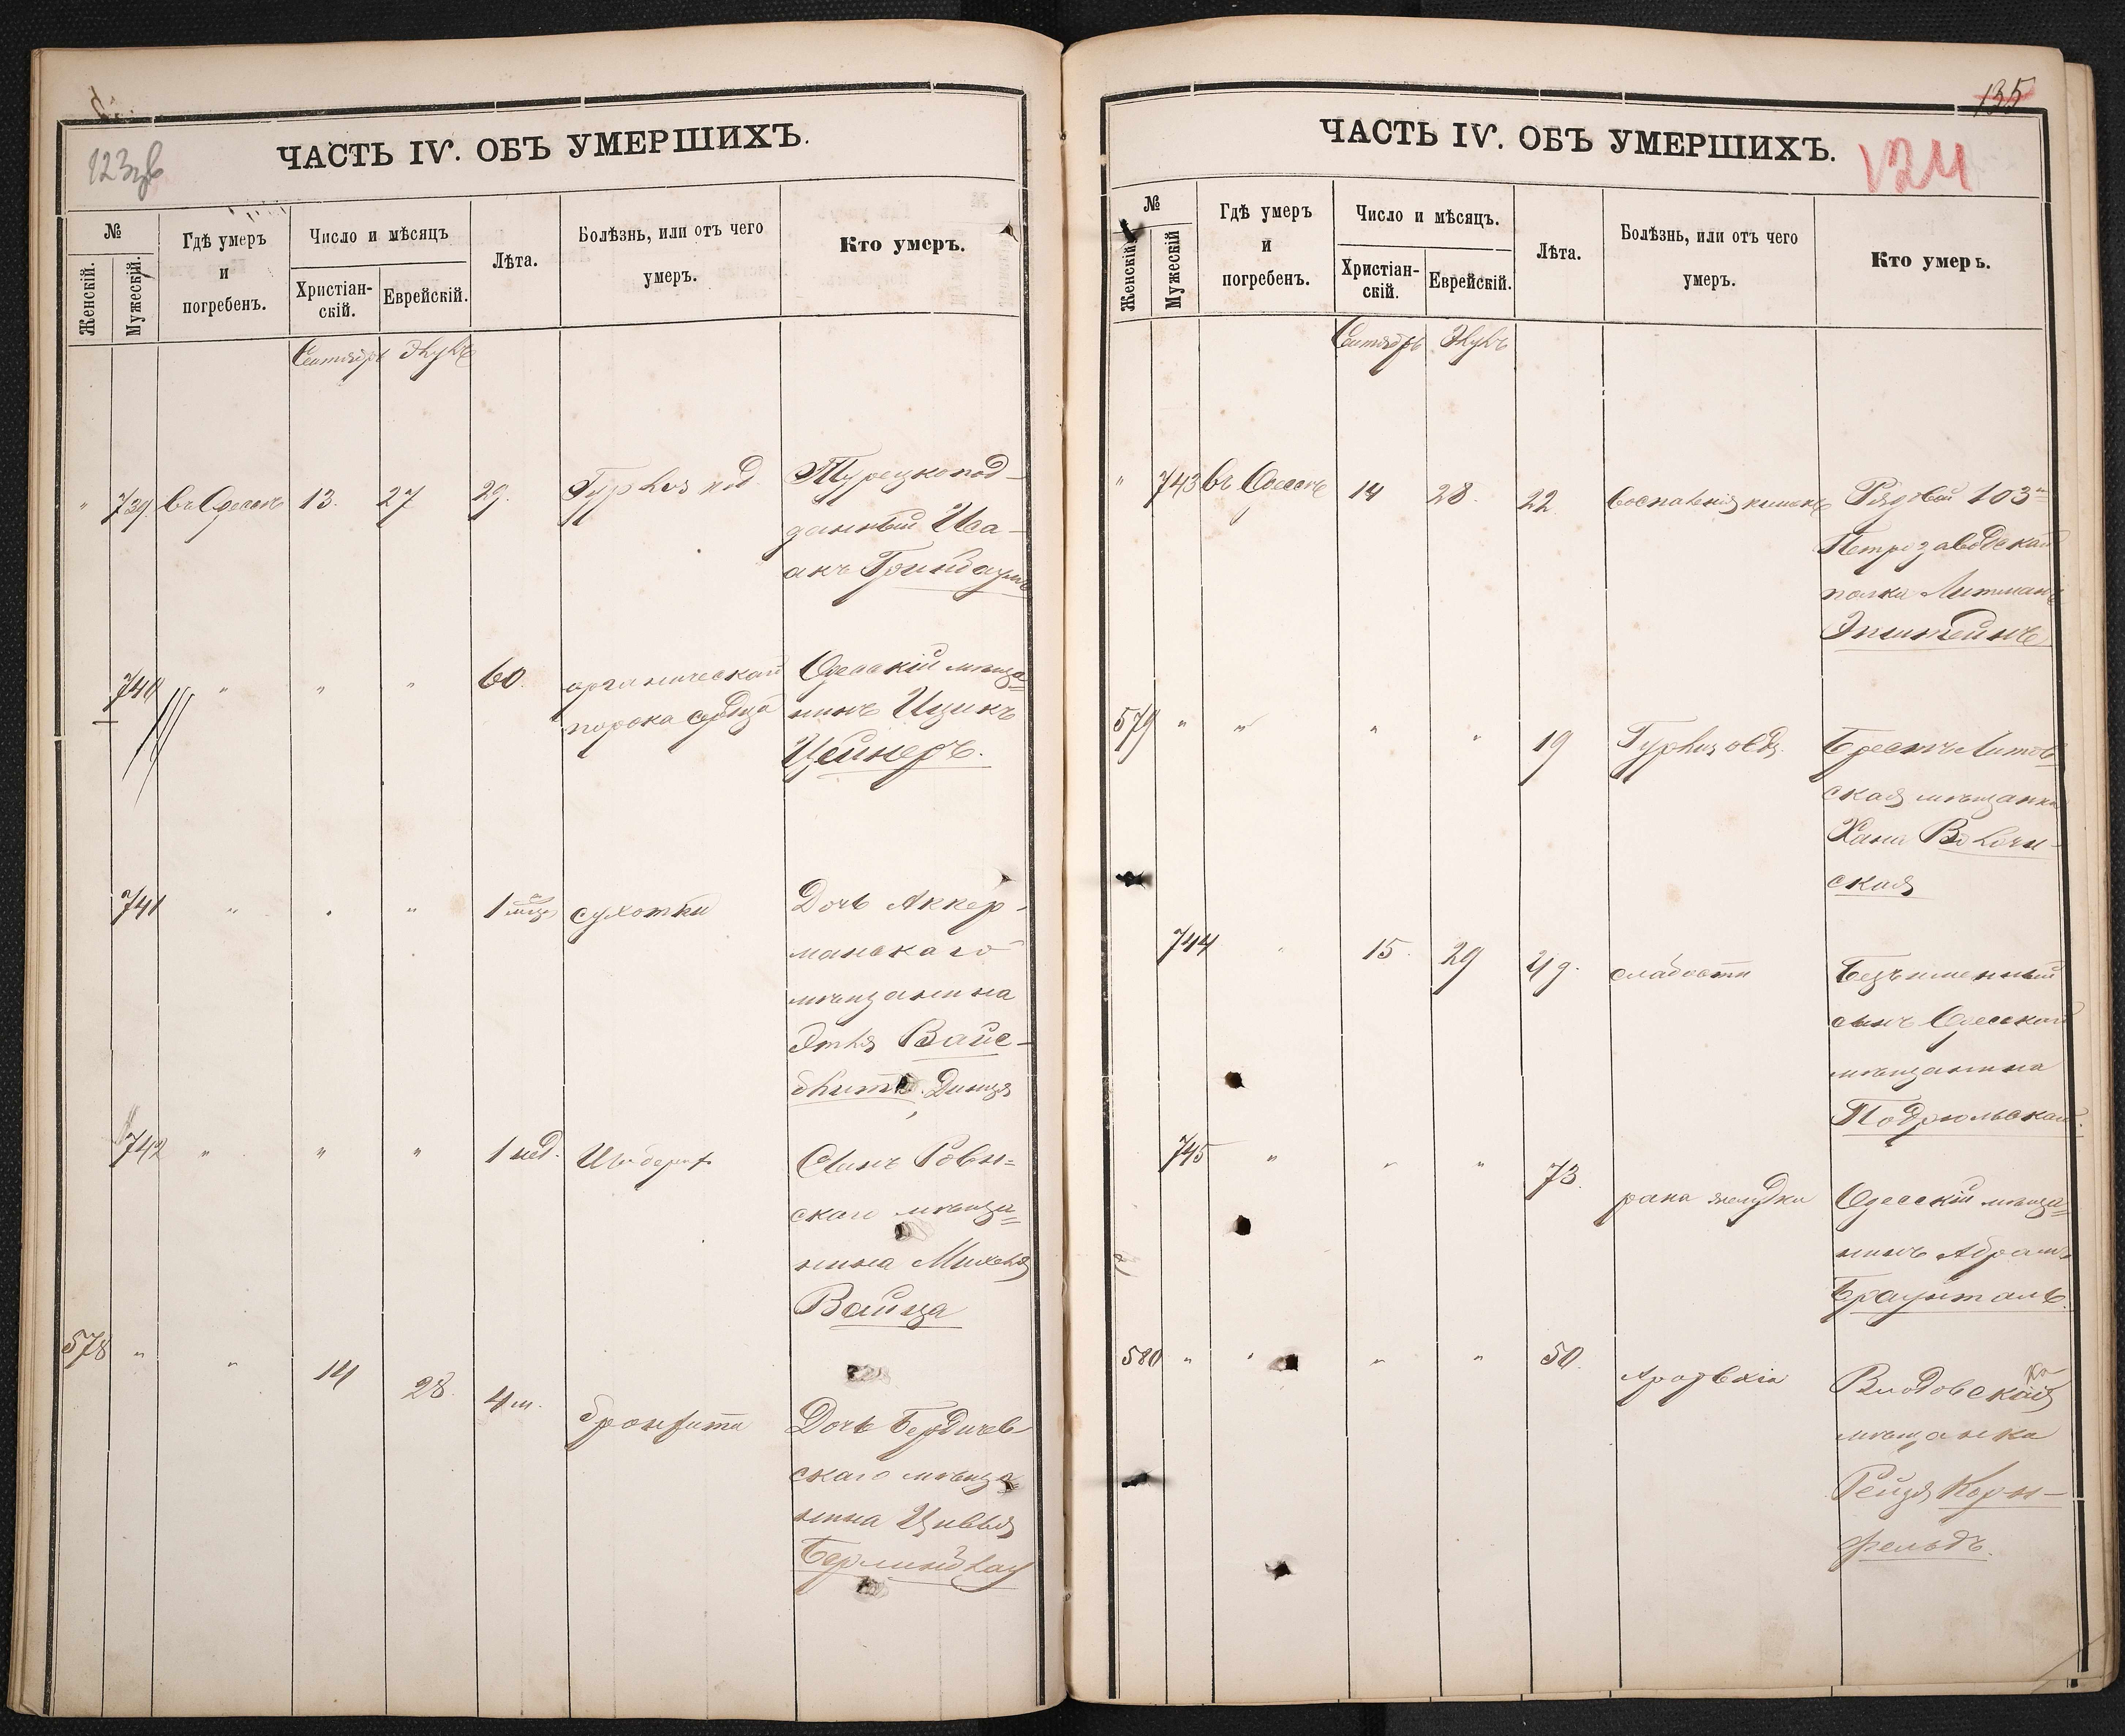 123зв
ЧАСТЬ IV. ОБЪ УМЕРШИХЪ.
№
Женскій.
Мужескій.
Гдѣ умеръ
и
погребенъ.
Число и мѣсяцъ
Христіан-
скій.
Еврейскій.
Лѣта.
Болѣзнь, или отъ чего
умеръ.
Кто умеръ.
Сентябрь Элулъ
" 739 въ Одессѣ 13. 27 29. Турецкопод-
данный Иса-
акъ Гринбаумъ
740 " " " 60. органическаго Одесскій мѣща=
порока сердца нинъ Ицикъ
Цейнеръ.
741 " " " 1 сухотки Дочь Аккер-
манскаго
мѣщанина
Этля Вайс-
742 " " " 1 нед. Сынъ Ровн=
скаго мѣща=
нина Михель
Вайнца
578 " " 14 28. 4 м. бронхита Дочь Бердичев-
скаго мѣща=
нина Цивья
135
ЧАСТЬ IV. ОБЪ УМЕРШИХЪ.
124
№
Женскій.
Мужескій
Гдѣ умеръ
и
погребенъ.
Число и мѣсяцъ.
Христіан-
скій.
Еврейскій.
Лѣта.
Болѣзнь, или отъ чего
умеръ.
Кто умеръ.
Сентябрь Элулъ
" 743 въ Одессѣ 14 28. 22 воспаленія кишекъ Рядовой 103го
Петрозаводскаго
полка Литманъ
Эпштейнъ
579 " " " " 19 Брестъ Литов-
ская мѣщанка
Хана
ская
744 15. 29 слабости Безъименный
сынъ Одесскаго
мѣщанина
Подрольскаго.
745 " " " 73. рана желудка Одесскій мѣща=
нинъ Абрамъ
Браунталь.
580 " " " " 50.
мѣщанка
Рейзя Корн-
фельдъ.